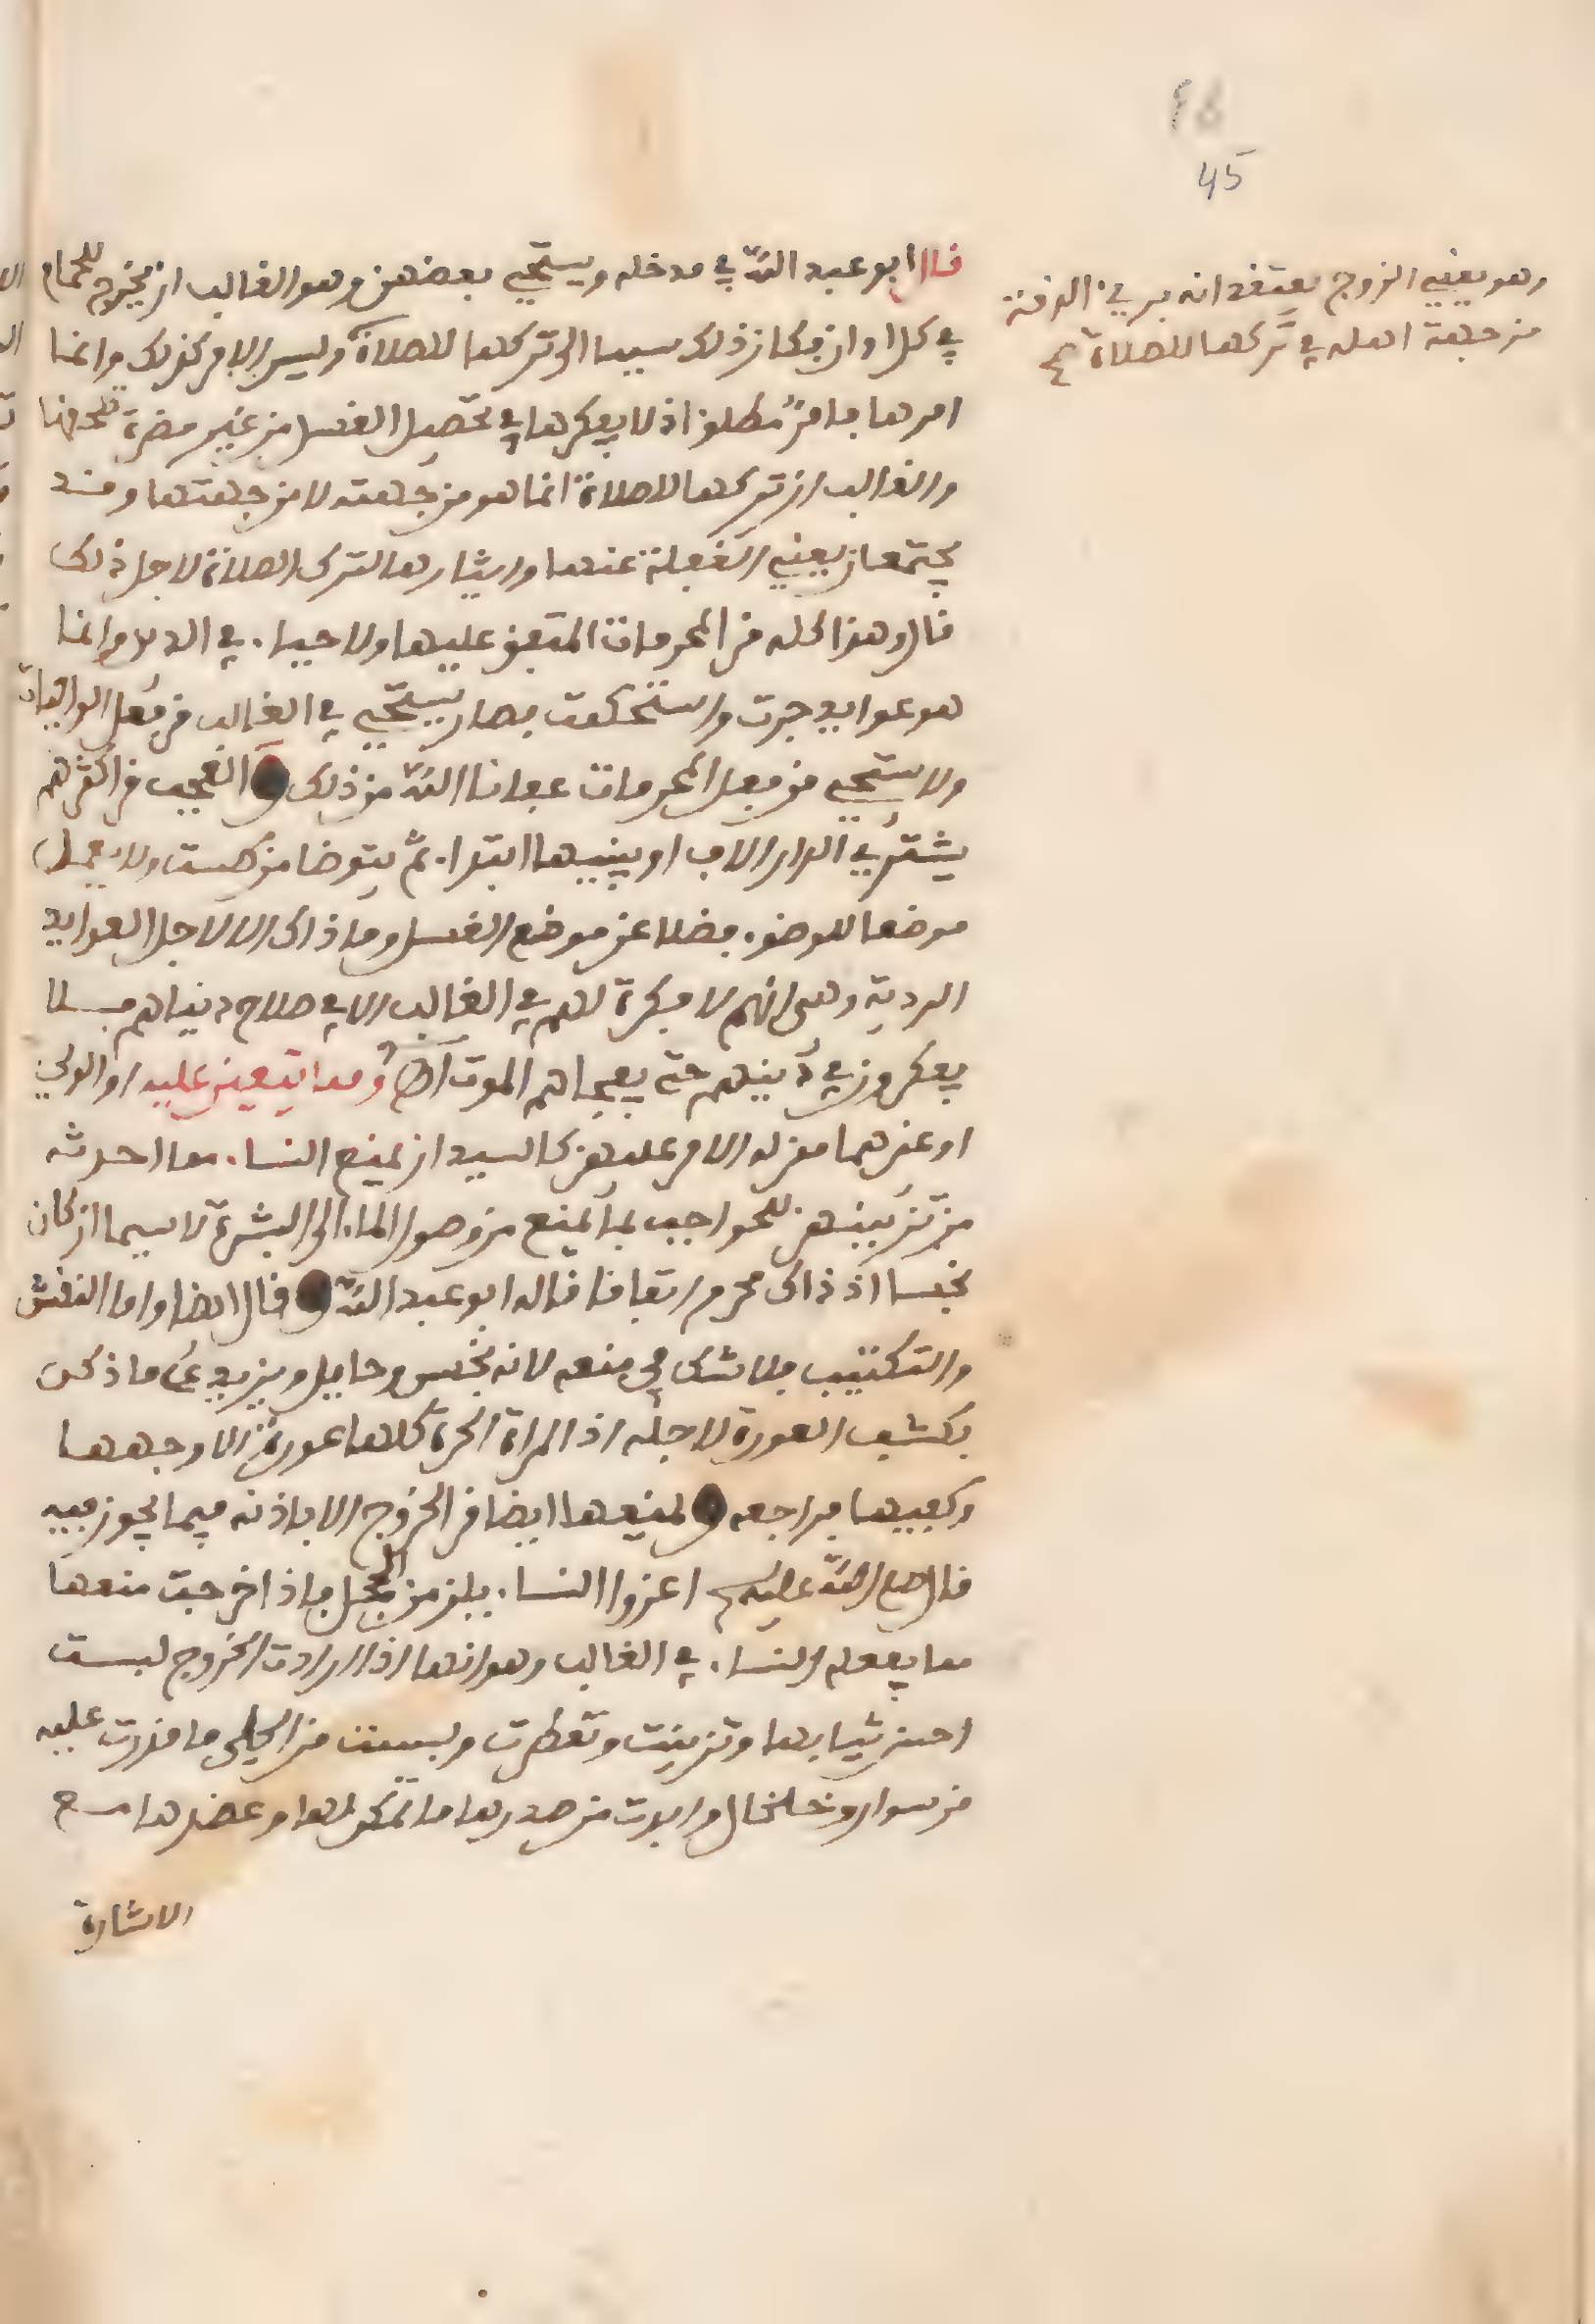 45
قال ابو عبد الله في مدخله ويستحيي بعضهن وهو الغالب ان يخرج للحمام
في كل اوان فكان ذلك سببا الى تركها للصلاة وليس الامر كذلك وانما
امرها بامر مطلق اذ لا يفكر هل في تحصيل الغسل من غير مضرة تلحقها
والغالب ان تركها للصلاة انما هو من جهته لا من جهتها وقد
يجتمعان يعني الغفلة عنها وايثارها لترك الصلاة لاجل ذلك
قال وهذا كله من المحرمات المتفق عليها ولا حياء في الدين وانما
هو عوايد جرت واستحكمت فصار يستحيي في الغالب من فعل الواجبات
ولا يستحيي من فعل المحرمات عافانا الله من ذلك والعجب من اكثرهم
يشتري الدار بالالاف او يبنيها ابتداء ثم يتوضا من طست ولا يعمل
موضعا للوضوء فضلا عن موضع الغسل وما ذاك الا لاجل العوايد
الردية وهي انهم لا فكرة لهم في الغالب الا في صلاح دنياهم فلا
يفكرون في دينهم حتى يفجاهم الموت اه ومما يتعين عليه او الولي
او غيرهما ممن له الامر عليهن كالسيد ان يمنع النساء مما احدثه
من تزيينهن للحواجب بما يمنع من وصول الماء الى البشرة لا سيما ان كان
نجسا اذ ذاك محرم اتفاقا قاله ابو عبد الله وقال ايضا واما النقش
والتكتيب فلا شك في منعه لانه نجس وحايل ويزيد على ما ذكر
بكشف العورة لاجله اذ المراة الحرة كلها عورة الا وجهها
وكفيها فراجعه ولمنعها ايضا من الخروج الا باذنه فيما يجوز فيه
قال صلى الله عليه وسلم اعزوا النساء يلزمن الحجل فاذا خرجت منعها
مما يفعله النساء في الغالب وهو انها اذا ارادت الخروج لبست
احسن ثيابها وتزينت وتعطرت ولبست من الحلي ما قدرت عليه
من سوار وخلخال وابدت من صدرها ما تمكن لها وعضدها مع
الاشارة
وهو يعني الزوج يعتقد انه بريء الذمة
من جهة اهله في تركها للصلاة